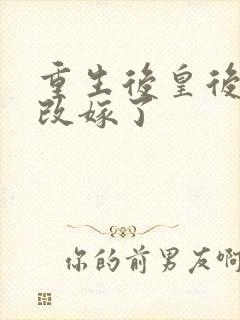 重生後皇後
改嫁了
你的前男友啊